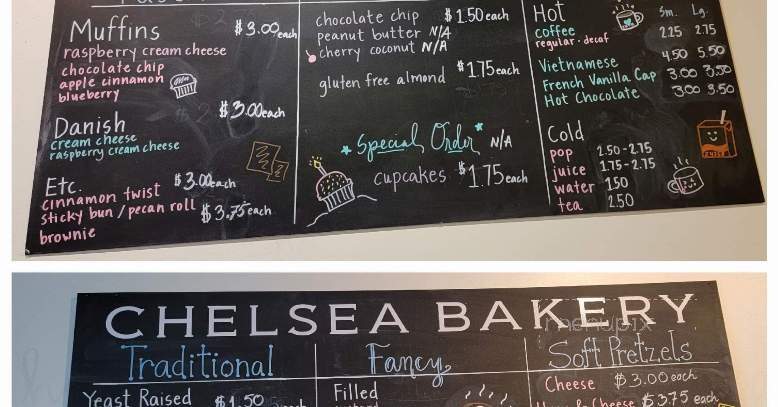 Muffins $3.00each
raspberry cream cheese
chocolate chip
apple cinnamon
blueberry
Danish $3.00each
cream cheese
raspberry cream cheese
Etc.
cinnamon twist $3.00each
sticky bun/pecan roll $3.75each
brownie
chocolate chip $1.50each
peanut butter N/A
cherry coconut N/A
gluten free almond $1.75each
Special Order N/A
cupcakes $1.75each
Hot Sm. Lg.
coffee 2.25 2.75
regular · decaf
Vietnamese 4.50 5.50
French Vanilla Cap 3.00 3.50
Hot Chocolate 3.00 3.50
Cold
pop 2.50-2.75
juice 1.75-2.75
water 1.50
tea 2.50
CHELSEA BAKERY
menupix
Traditional Fancy Soft Pretzels
Yeast Raised $1.50
Filled
Cheese $3.00each
& Cheese $3.75 each